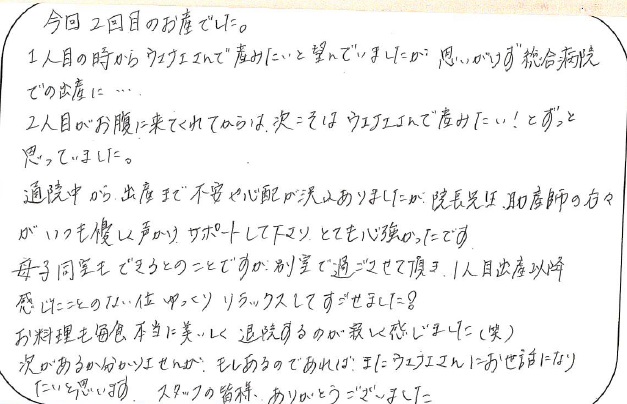 今回2回目のお産でした。
1人目の時からウエナエさんで産みたいと望んでいましたが 思いがけず総合病院
での出産に…。
2人目がお腹に来てくれてからは、次こそはウエナエさんで産みたい！とずっと
思っていました。
通院中から、出産まで不安や心配が沢山ありましたが、院長先生、助産師の方々
がいつも優しく声かけ、サポートして下さり、とても心強かったです
母子同室もできるとのことですが、別室で過ごさせて頂き、1人目出産以降
感じたことのない位ゆっくりリラックスしてすごせました？
お料理も毎食本当に美しく退院するのが寂しく感じました(笑)
次があるか分かりませんが、もしあるのであれば、またウエナエさんにお世話になり
たいと思います。 スタッフの皆様、ありがとうございました